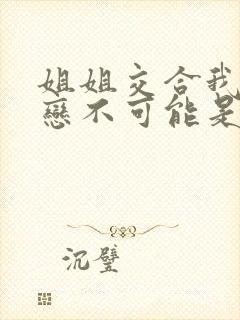 姐姐交合我
戀不可能是
沉璧